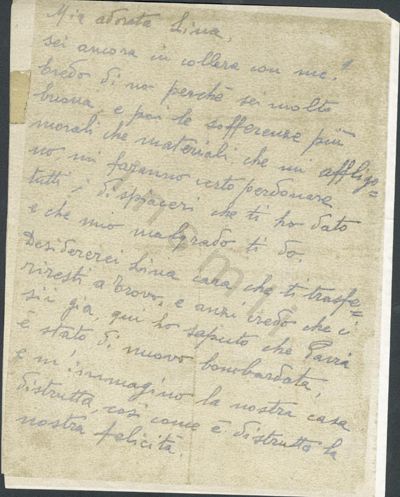 Mia adorata Lina,
sei ancora in collera con me?
Credo di no perchè sei molto
buona, e poi le sofferenze più
morali che materiali che mi affliggo=
no, mi faranno certo perdonare
tutti i dispiaceri che ti ho dato
e che mio malgrado ti do.
Desidererei Lina cara che ti trasfe=
rissi a Trovo, e anzi credo che ci
sii già, qui ho saputo che Pavia
è stato di nuovo bombardata,
e m'immagino la nostra casa
distrutta, così come è distrutto la
nostra felicità.